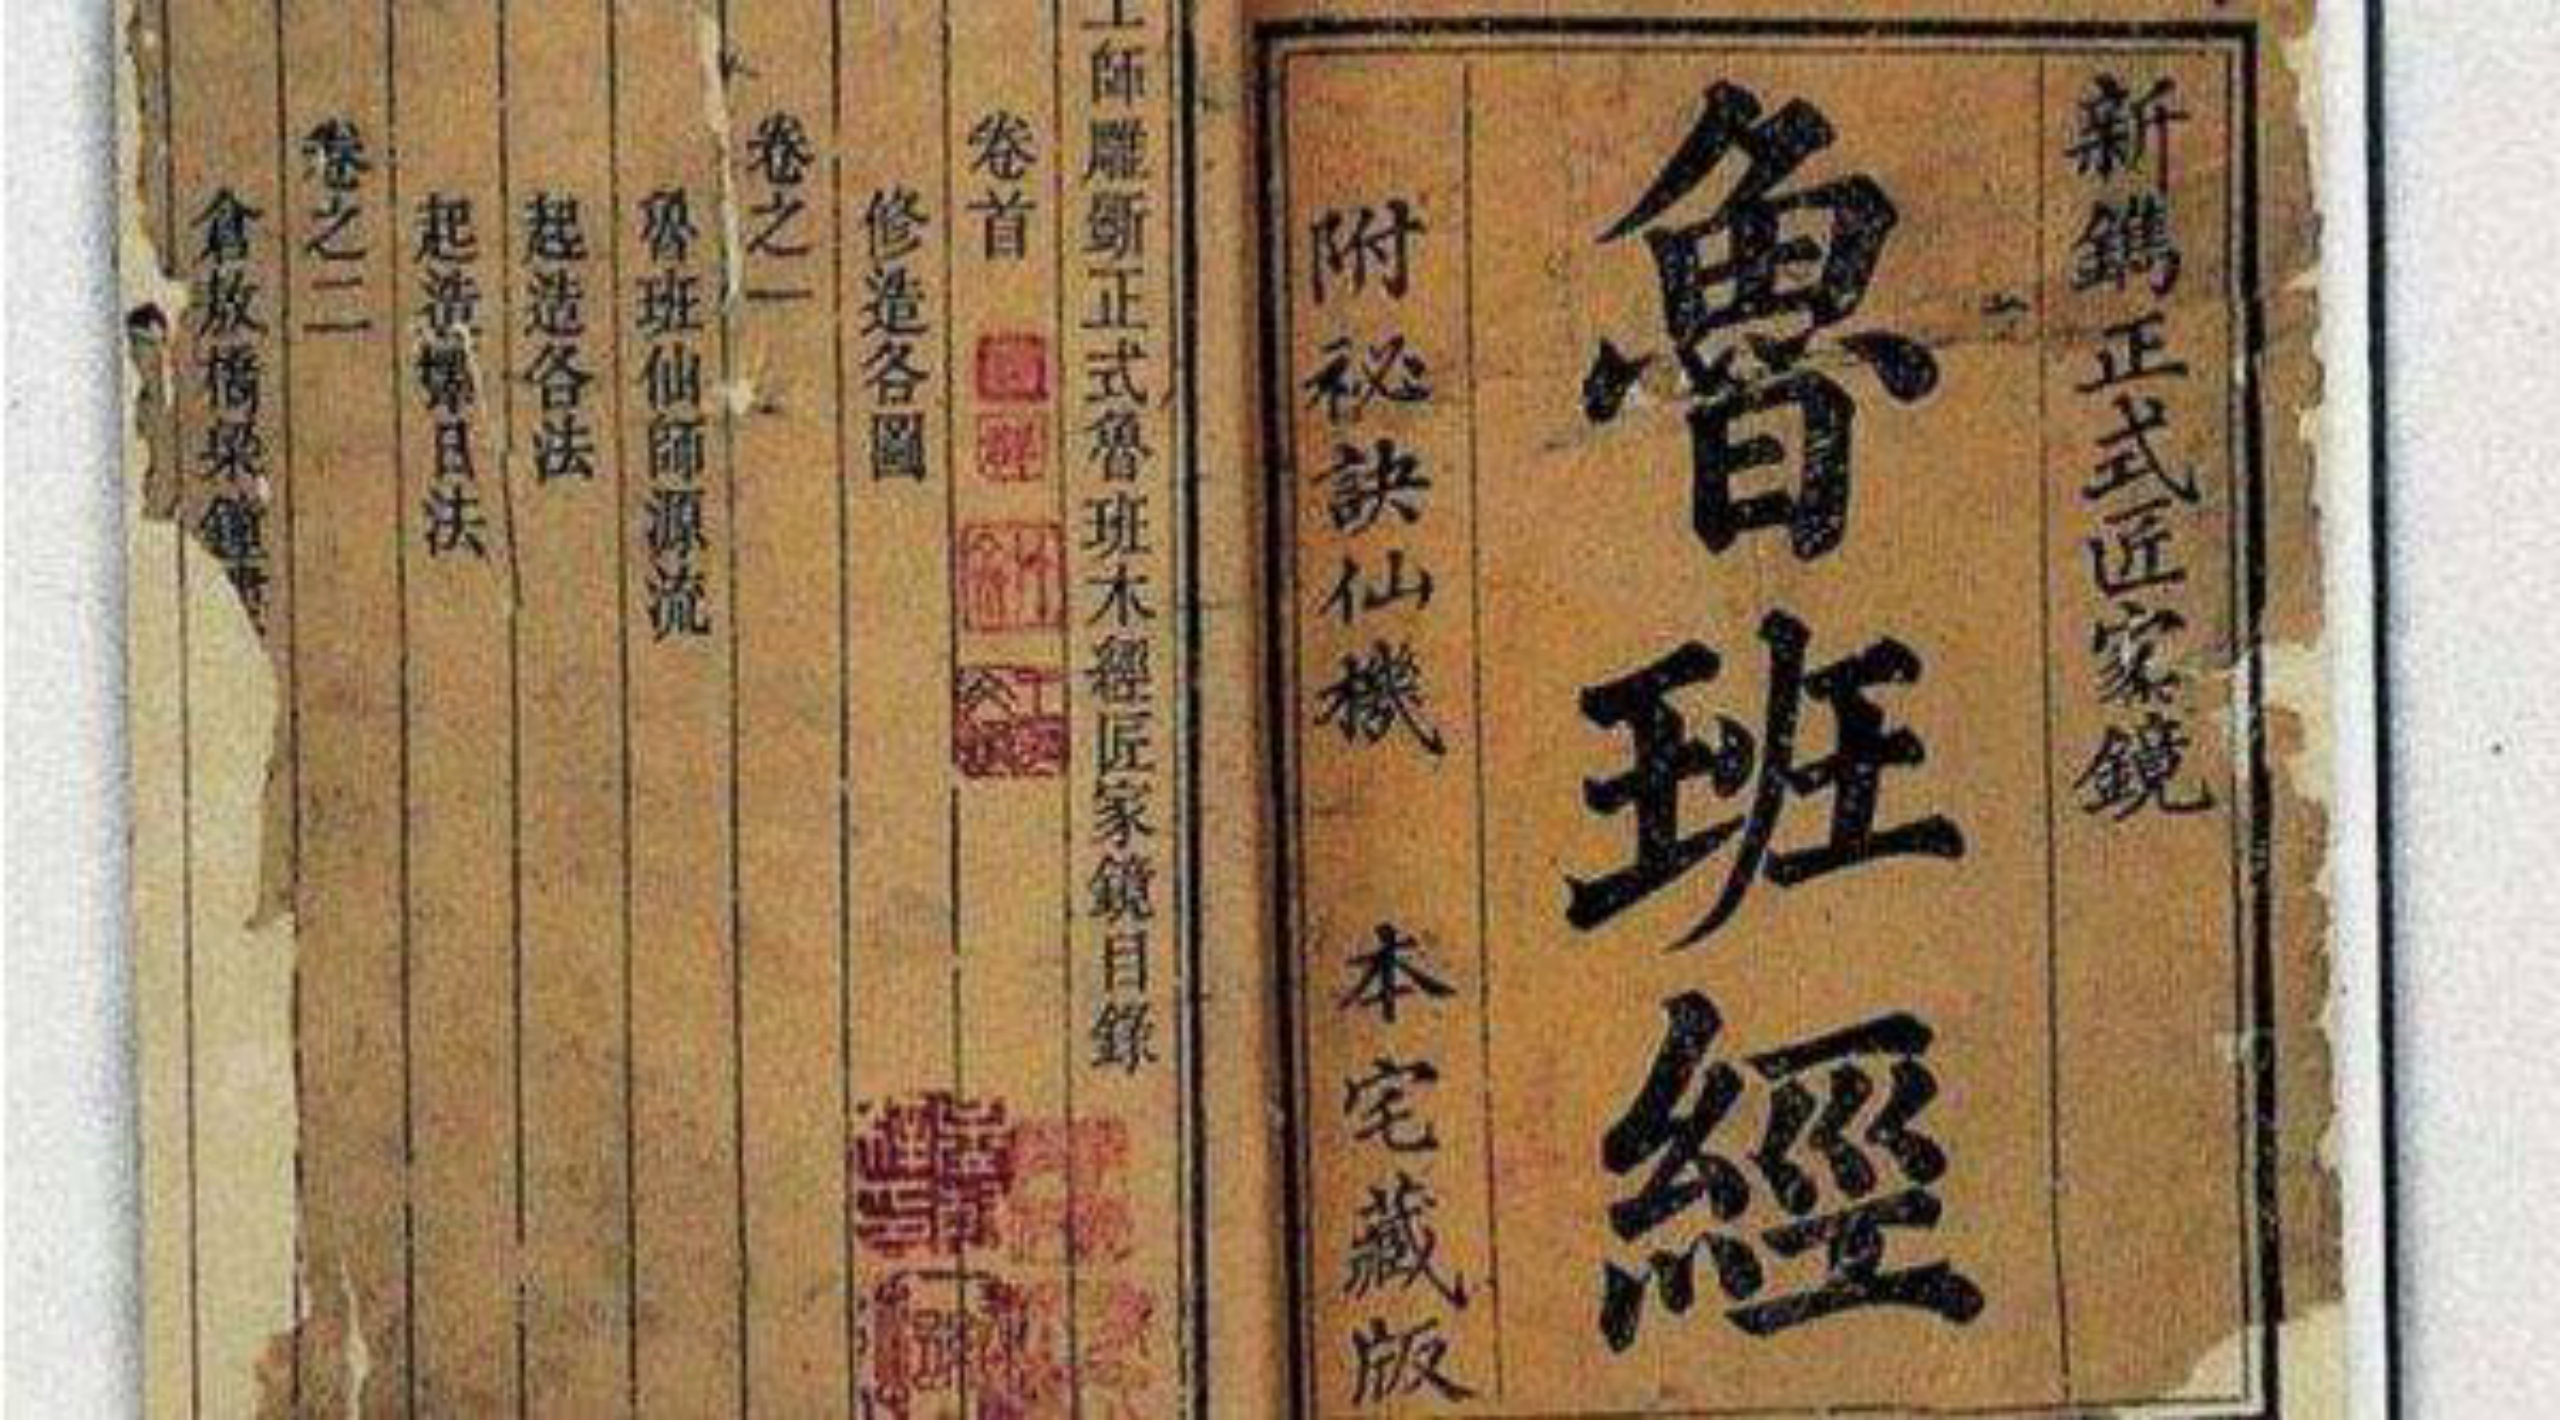 新鐫正式匠家鏡
魯班經
附祕訣仙機 本宅藏版
工師雕斵正式魯班木經匠家鏡目錄
卷首
修造各圖
卷之一
魯班仙師源流
起造各法
起造擇日法
卷之二
倉敖橋梁鐘